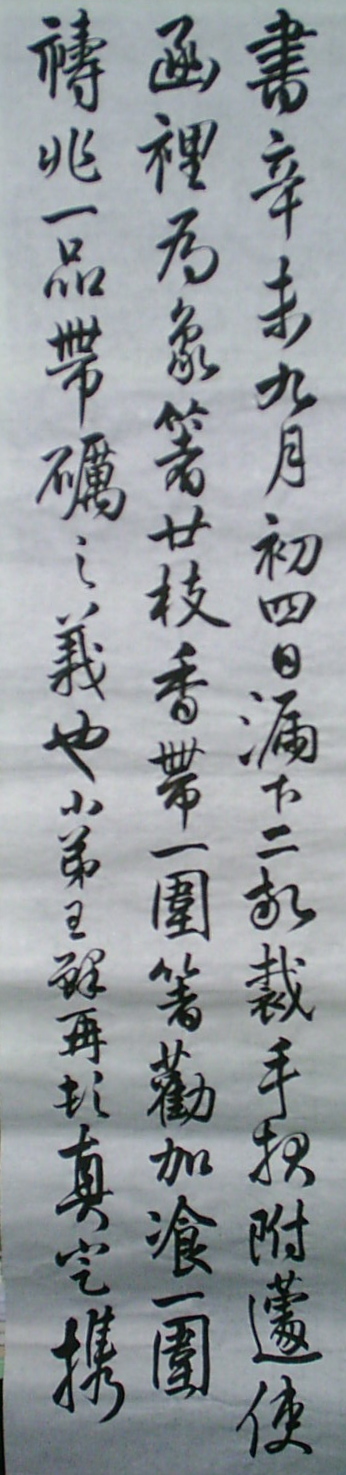 書辛未九月初四日漏下二鼓裁手札附蘧使
函裡為象箸廿枝香帶一圍箸勸加飡一圍
禱兆一品帶礪之義也小弟王鐸再頓真定攜